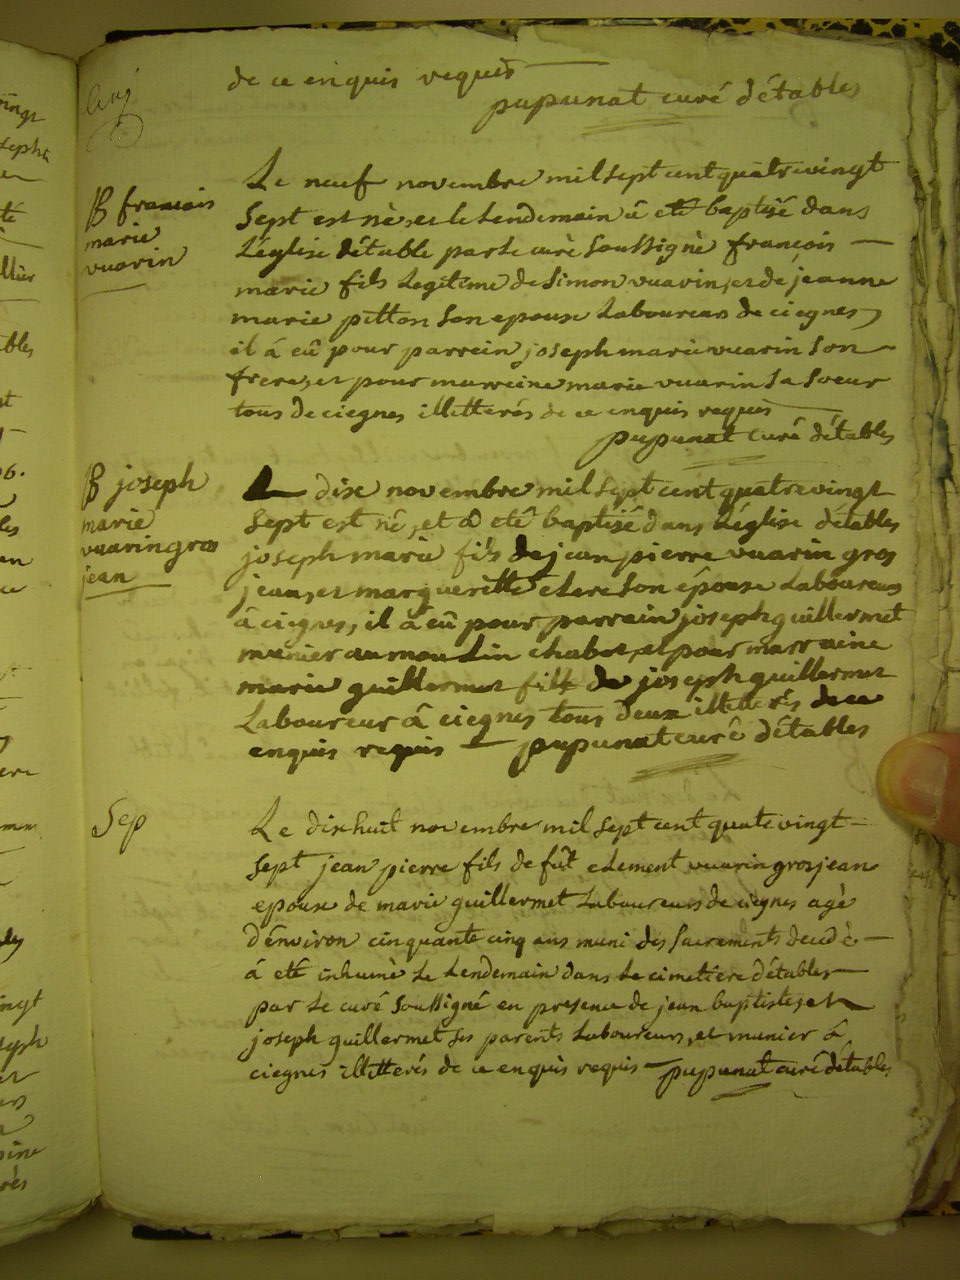 de ce enquis requis
pupunat curé détables
Le neuf novembre mil sept cent quatrevingt
B françois
Sept est nè, et le Lendemain â eté baptisé dans
marie
Léglise détable par le curè Soussignè françois
vuarin
marie fils Legitime de Simon vuarin, et de jeanne
marie pitton Son epouse Laboureurs de ciegnes,
il â eû pour parrein joseph marie vuarin Son
frere, et pour marreine marie vuarin Sa Soeur
tous de ciegnes illetterés de ce enquis requis
pupunat curé détables
B joseph
Le dixe novembre mil Sept cent quatrevingt
marie
Sept est nê, et â etê baptisé dans Léglise détables
vuarin gros
joseph marie fils de jean pierre vuarin gros
jean
jean, et margueritte clere Son épouse Laboureurs
â ciegnes, il â eû pour parrain joseph guillermet
munier au moulin chabot, et pour marraine
marie guillermet fille de joseph guillermet
Laboureur â ciegnes tous deux illetterés de ce
enquis requis pupunat curê détables
Sep
Le dixhuit novembre mil Sept cent quatevingt
Sept jean pierre fils de fût clement vuarin grosjean
epoux de marie guillermet Laboureurs de ciegnes agè
d'énviron cinquante cinq ans muni des Sacrements decedè
â eté inhumè Le Lendemain dans Le cimetiere détables
par Le curé Soussigné en presence de jean baptiste, et
joseph guillermet Ses parents Laboureurs, et munier â
ciegnes illitterés de ce enquis requis pupunat curê détables